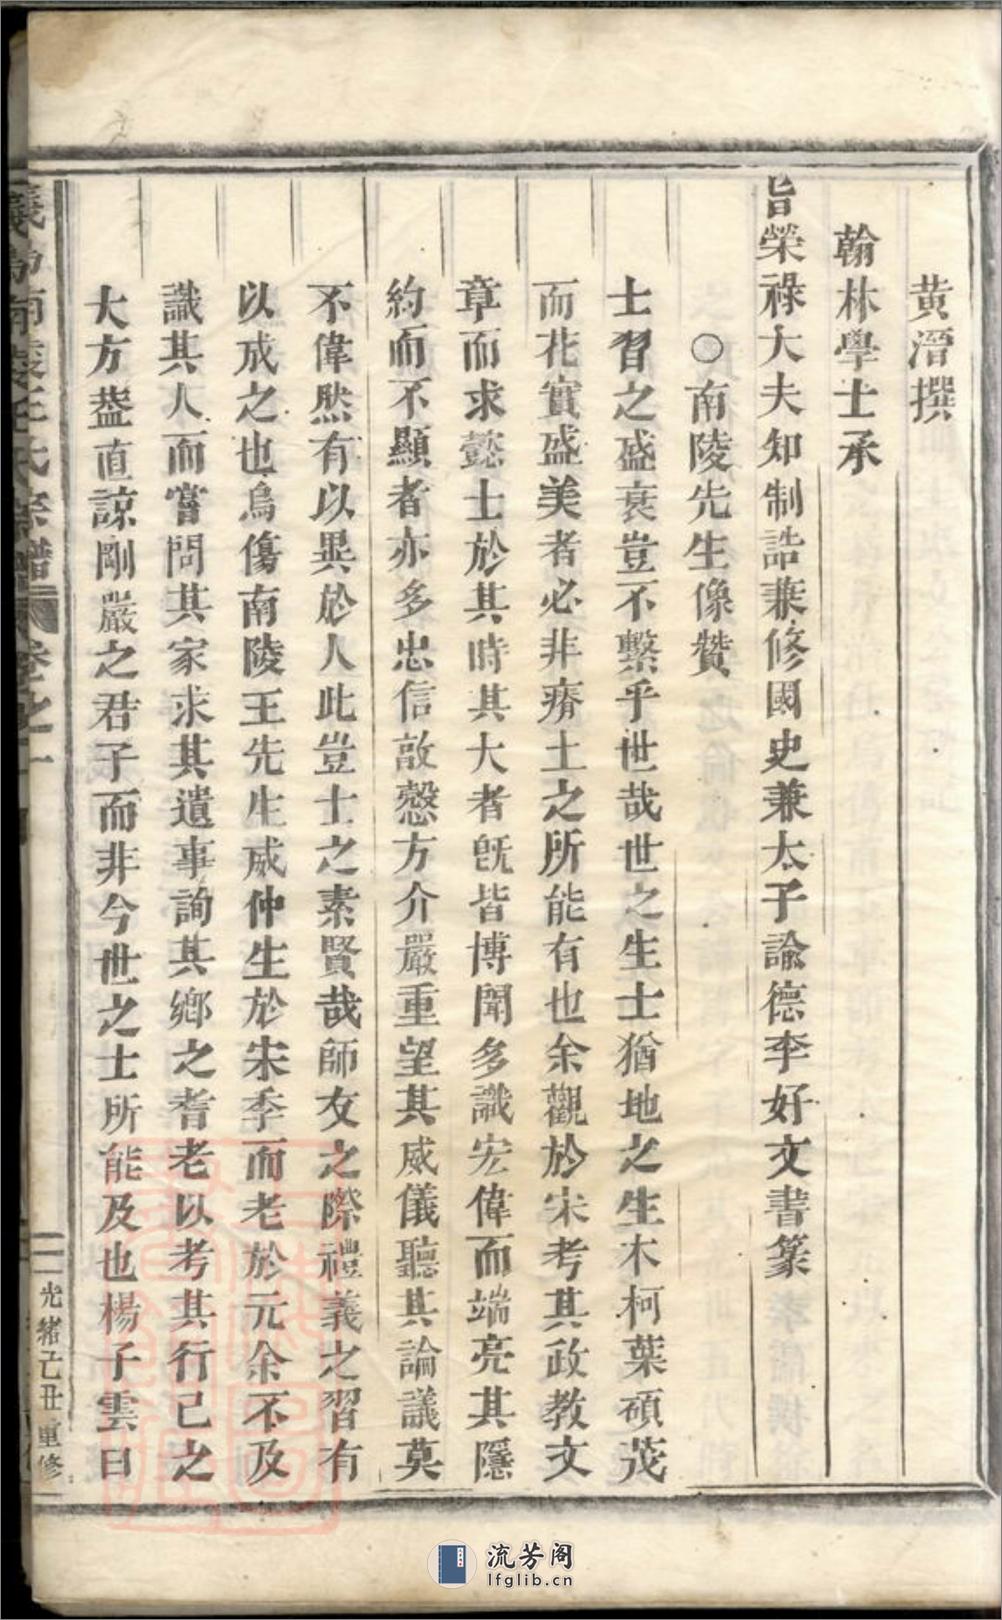 黃溍撰
翰林學士承
旨榮祿大夫知制誥兼修國史兼太子諭德李好文書篆
○南陵先生像贊
士習之盛衰豈不繫乎世哉世之生士猶地之生木柯葉碩茂
而花實盛美者必非瘠土之所能有也余觀於宋考其政教文
章而求懿士於其時其大者旣皆博聞多識宏偉而端亮其隱
約而不顯者亦多忠信敦愨方介嚴重望其威儀聽其論議莫
不偉然有以異於人此豈士之素賢哉師友之際禮義之習有
以成之也烏傷南陵王先生威仲生於宋季而老於元余不及
識其人而嘗問其家求其遺事詢其鄉之耆老以考其行己之
大方葢直諒剛嚴之君子而非今世之士所能及也楊子雲曰
義烏南陵王氏宗譜 卷之十
二 光緒己丑重修
流芳阁
lfglib.cn